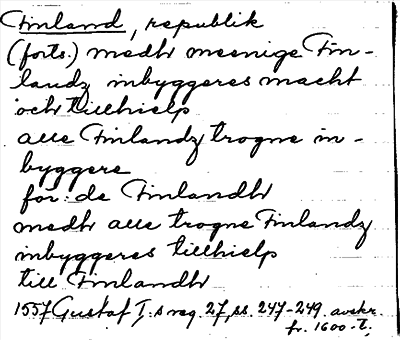 Finland, republik
(forts.) medh meenige Fin-
landz inbyggeres macht
och tillhielp
alle Finlandz trogne in-
byggere
for: de Finlandh
medh alle trogne Finlandz
inbyggeres tillhielp
till Finlandh
1557 Gustaf I:s reg. 27, ss. 247-249. avskr.
fr. 1600-t.